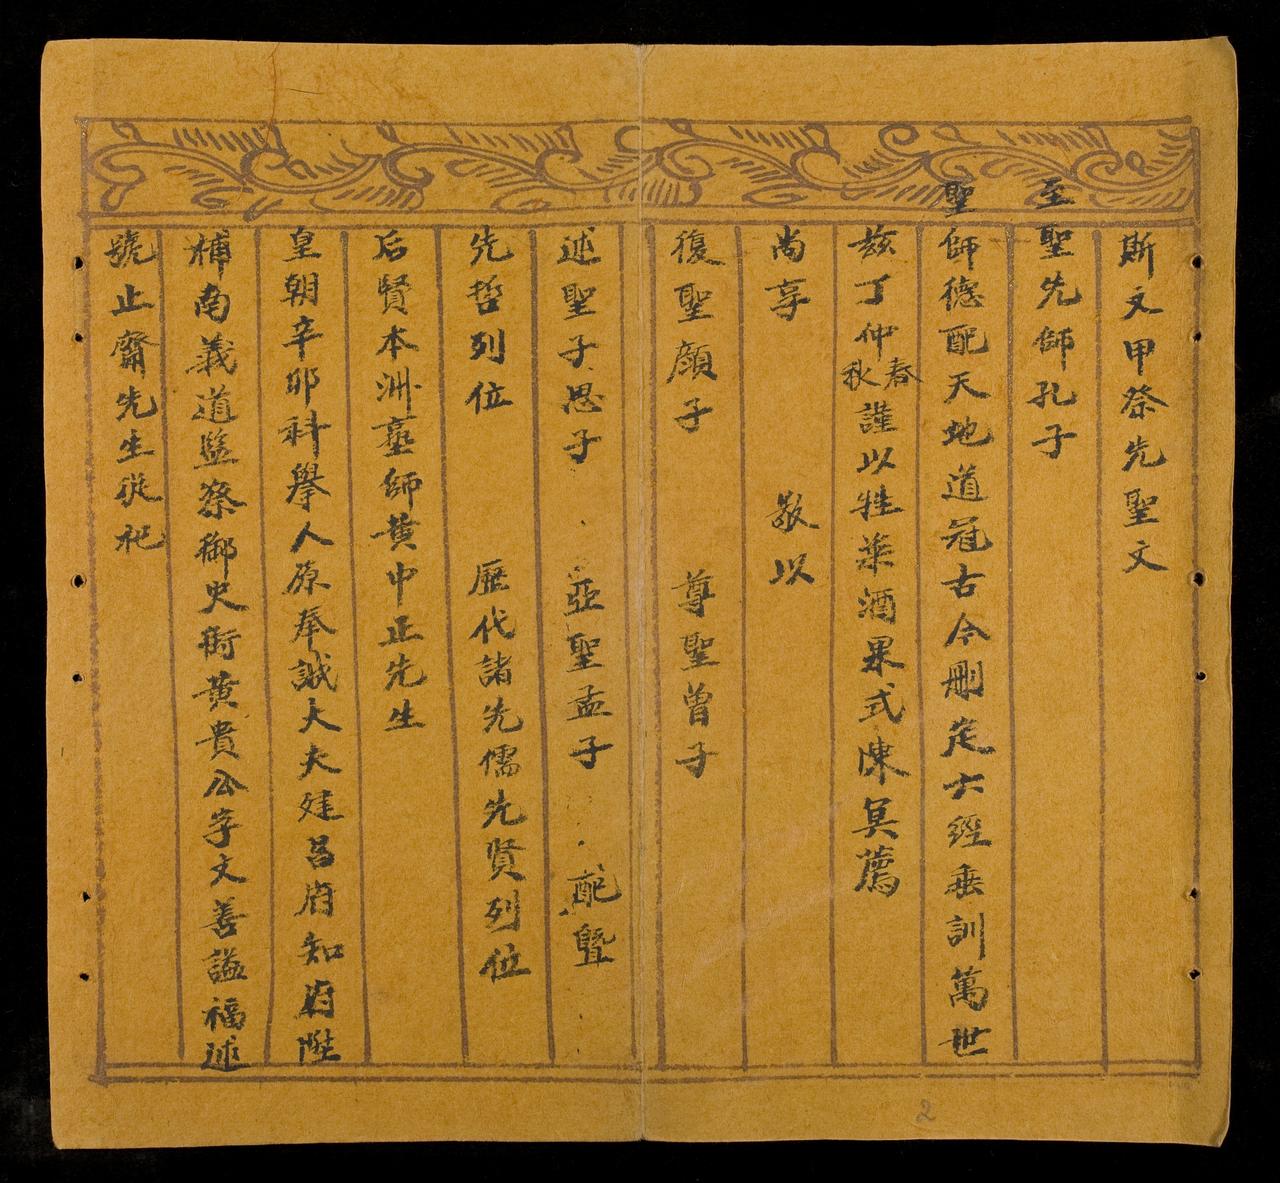 斯文甲祭先聖文
至聖先師孔子
聖師德配天地道冠古今刪定六經垂訓萬世
茲丁仲春秋謹以牲粢酒果式陳奠薦
尚享 敬以
復聖顔子 尊聖曾子
述聖子思子 亞聖孟子 配曁
先哲列位 歷代諸先儒先賢列位
后賢本洲塾師黄中正先生
皇朝辛卯科擧人原奉誠大夫建昌府知府陞
補南義道監察御史銜黄貴公字文善謚福述
號止齋先生從祀
2